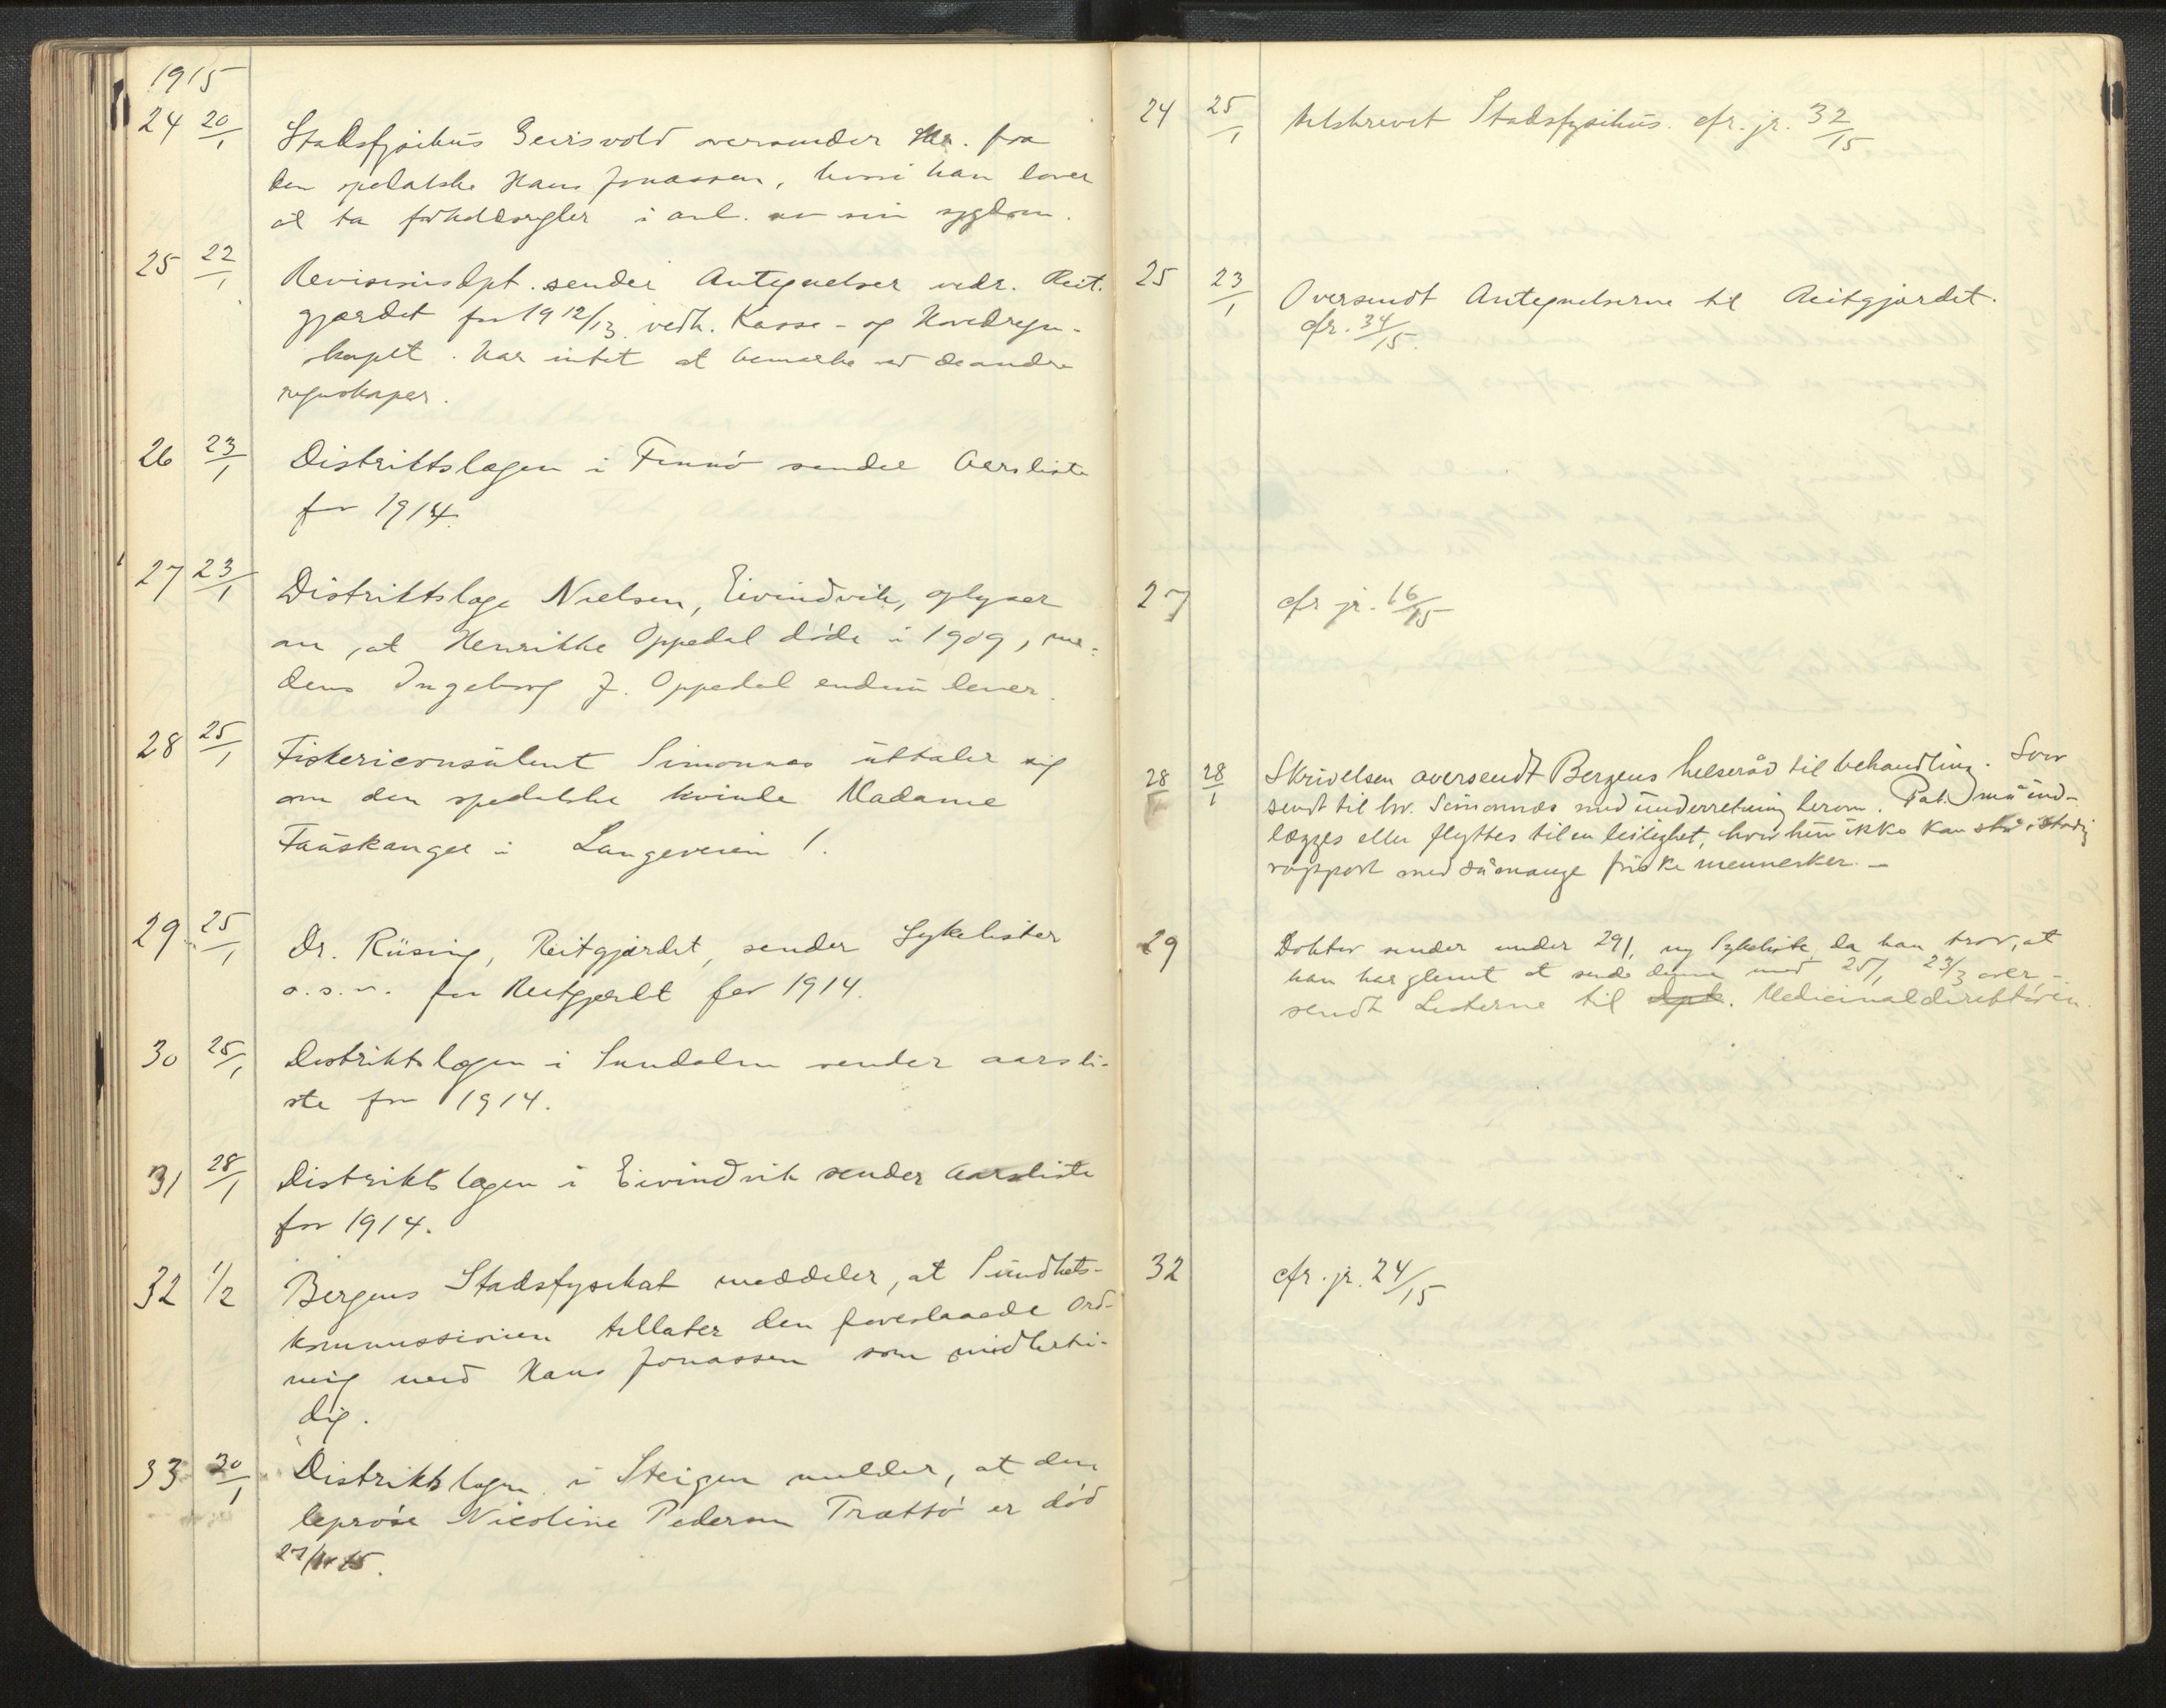 1915
24 20/1 Stadsfysikus Geirsvold oversender skr. fra
den spedalske Hans Jonassen, hvori han lover
at ta forholdsregler i anl. av sin sygdom.
25 22/1 Revisionsdpt. sender Antegnelser vedr. Reit-
gjærdet for 1912/13 vedk. Kasse- og Hovedregn-
skapet. Har intet at bemerke ved de andre
regnskaper.
26 23/1 Distriktslægen i Finnö sender Aarsliste
for 1914.
27 23/1 Distriktslæge Nielsen, Eivindvik, oplyser
om, at Henrikke Oppedal döde i 1909, me-
dens Ingeborg J. Oppedal endnu lever.
28 25/1 Fiskericonsulent Simonnæs uttaler sig
om den spedalske kvinde Madame
Fauskanger i Langeveien 1.
29 25/1 Dr. Rüsing, Reitgjærdet, sender Sykelister
o.s.v. for Reitgjærdet for 1914.
30 25/1 Distriktslægen i Sundalen sender aarsli-
ste for 1914.
31 28/1 Distriktslægen i Eivindvik sender Aarsliste
for 1914.
32 1/2 Bergens Stadsfysikat meddeler, at Sundhets-
kommissionen tillater den foreslaaede Ord-
ning med Hans Jonassen som midlerti-
dig.
33 30/1 Distriktslægen i Steigen melder, at den
leprøse Nicoline Pedersen Trættö er död
24 25/1 Tilskrevet Stadsfysikus. cfr. jr. 32/15
25 23/1 Oversendt Antegnelserne til Reitgjærdet.
cfr. 34/15.
27 cfr jr. 16/15
28 28/1 Skrivelsen oversendt Bergens helseråd til behandling. Svar
sendt til hr. Simonnæs med underretning herom. Pat. må ind-
lægges eller flyttes til en leilighet, hvor hun ikke kan stå i stadig
rapport med så mange friske mennesker. –
29 Doktor sender under 29/1 ny Sykeliste, da han tror, at
han har glemt at sende denne med 25/1. 23/3 over-
sendt Listerne til dpt. Medicinaldirektören.
32 cfr. jr. 24/15